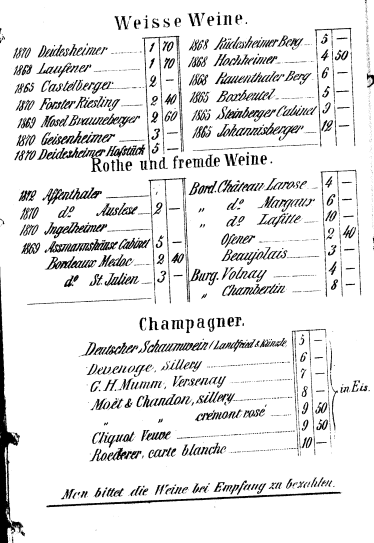 Weisse Weine.
1870 Deidesheimer 1 70
1868 Laufener 1 70
1865 Castelberger 2 —
1870 Forster Riesling 2 40
1869 Mosel Brauneberger 2 60
1870 Geisenheimer 3 —
1870 Deidesheimer Hofstück 5 —
1868 Rüdesheimer Berg 5 —
1868 Hochheimer 4 50
1868 Rauenthaler Berg 6 —
1865 Boxbeutel 5 —
1865 Steinberger Cabinet 9 —
1865 Johannisberger 12 —
Rothe und fremde Weine.
1872 Affenthaler
1870 do Auslese 2 —
1870 Jngelheimer
1869 Assmannshäuse Cabinet 5 —
Bordeaux Medoc 2 40
do St. Julien 3 —
Bord. Château Larose 4 —
„ do Margaux 6 —
„ do Lafitte 10 —
Ofener 2 40
Beaujolais 3 —
Burg. Volnay 4 —
„ Chambertin 8 —
Champagner.
Deutscher Schaumwein (Landfried & Künzle 5 —
Devenoge, Sillery 6 —
G. H. Mumm, Versenay 7 —
Moët & Chandon, sillery 8 —
„ „ crémont rosé 9 50
Cliquot Veuve 9 50
Roederer, carte blanche 10 —
in Eis.
Man bittet die Weine bei Empfang zu bezahlen.